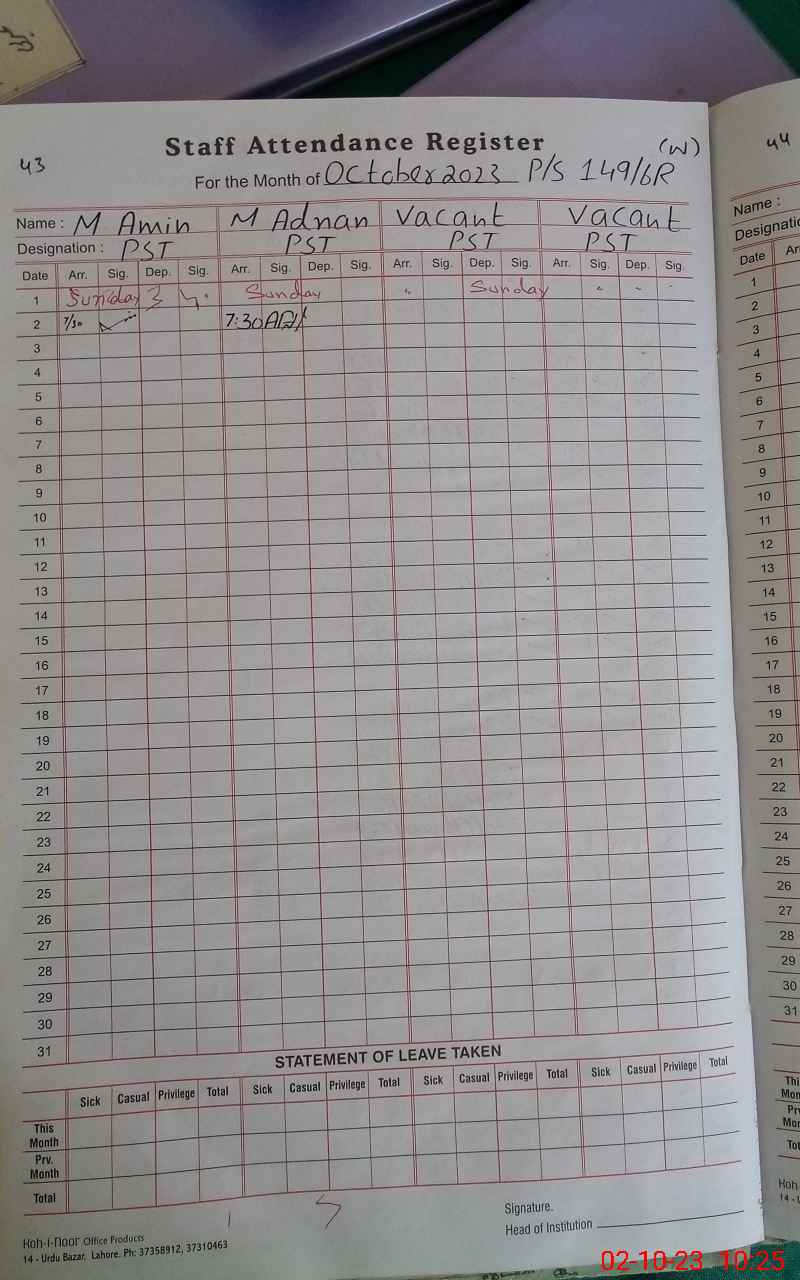 Staff Attendance Register (W)
43
For the Month of October 2023 P/S 149/6R
Name : M Amin M Adnan Vacant Vacant
Designation : PST PST PST PST
Date Arr. Sig. Dep. Sig. Arr. Sig. Dep. Sig. Arr. Sig. Dep. Sig. Arr. Sig. Dep. Sig.
1 Sunday Sunday Sunday
2 7/30 7:30
3
4
5
6
7
8
9
10
11
12
13
14
15
16
17
18
19
20
21
22
23
24
25
26
27
28
29
30
31
STATEMENT OF LEAVE TAKEN
Sick Casual Privilege Total Sick Casual Privilege Total Sick Casual Privilege Total Sick Casual Privilege Total
This Month
Prv. Month
Total
Signature.
Head of Institution
Koh-i-noor Office Products
14 - Urdu Bazar, Lahore. Ph: 37358912, 37310463
44
Name :
Date
1
2
3
4
5
6
7
8
9
10
11
12
13
14
15
16
17
18
19
20
21
22
23
24
25
26
27
28
29
30
31
02-10-23 10:25